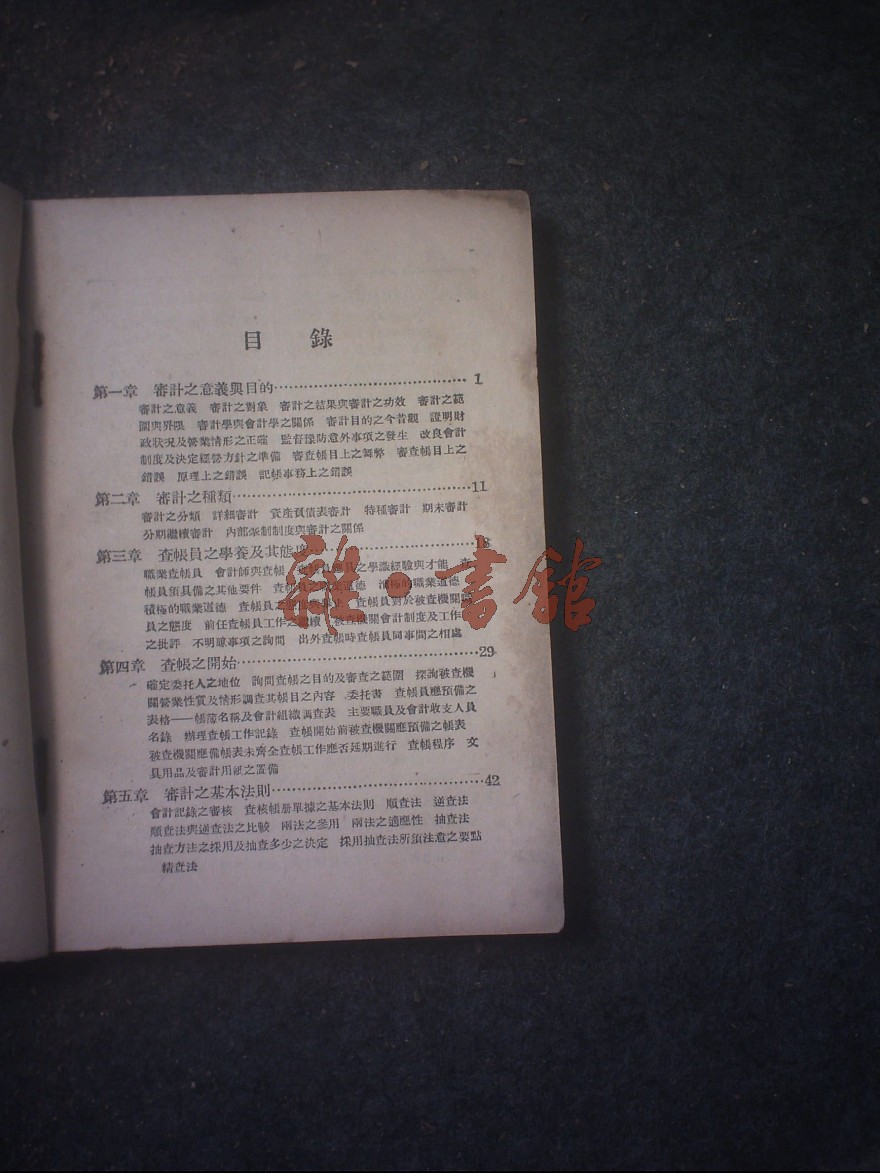 目　錄
第一章　審計之意義與目的⋯⋯⋯⋯⋯⋯⋯⋯⋯⋯⋯⋯ 1
審計之意義　審計之對象　審計之結果與審計之功效　審計之範
圍與界限　審計學與會計學之關係　審計目的之今昔觀　證明財
政狀况及營業情形之正確　監督豫防意外事項之發生　改良會計
制度及決定經營方針之準備　審查帳目上之舞弊　審查帳目上之
錯誤　原理上之錯誤　記帳事務上之錯誤
第二章　審計之種類⋯⋯⋯⋯⋯⋯⋯⋯⋯⋯⋯⋯⋯⋯ 11
審計之分類　詳細審計　資產負債表審計　特種審計　期末審計
分期繼續審計　內部牽制制度與審計之關係
第三章　查帳員之學養及其態度⋯⋯⋯⋯⋯⋯⋯⋯ 18
職業查帳員　會計師與查帳　應具之學識經驗與才能
帳員須具備之其他要件　查帳員之職業道德　消極的職業道德
積極的職業道德　查帳員之　查帳員對於被查機關
員之態度　前任查帳員工作之　被查機關會計制度及工作
之批評　不明瞭事項之詢問　出外查帳時查帳員同事間之相處
第四章　查帳之開始⋯⋯⋯⋯⋯⋯⋯⋯⋯⋯⋯⋯⋯⋯ 29
確定委托人之地位　詢問查帳之目的及審查之範圍　探詢被查機
關營業性質及情形調查其帳目之內容　委托書　查帳員應預備之
表格——帳簿名稱及會計組織調查表　主要職員及會計收支人員
名錄　辦理查帳工作記錄　查帳開始前被查機關應預備之帳表
被查機關應備帳表未齊全查帳工作應否延期進行　查帳程序　文
具用品及審計用紙之置備
第五章　審計之基本法則⋯⋯⋯⋯⋯⋯⋯⋯⋯⋯⋯⋯ 42
會計記錄之審核　查核帳册單據之基本法則　順查法　逆查法
順查法與逆查法之比較　兩法之參用　兩法之適應性　抽查法
抽查方法之採用及抽查多少之決定　採用抽查法所須注意之要點
精查法
雜·書館